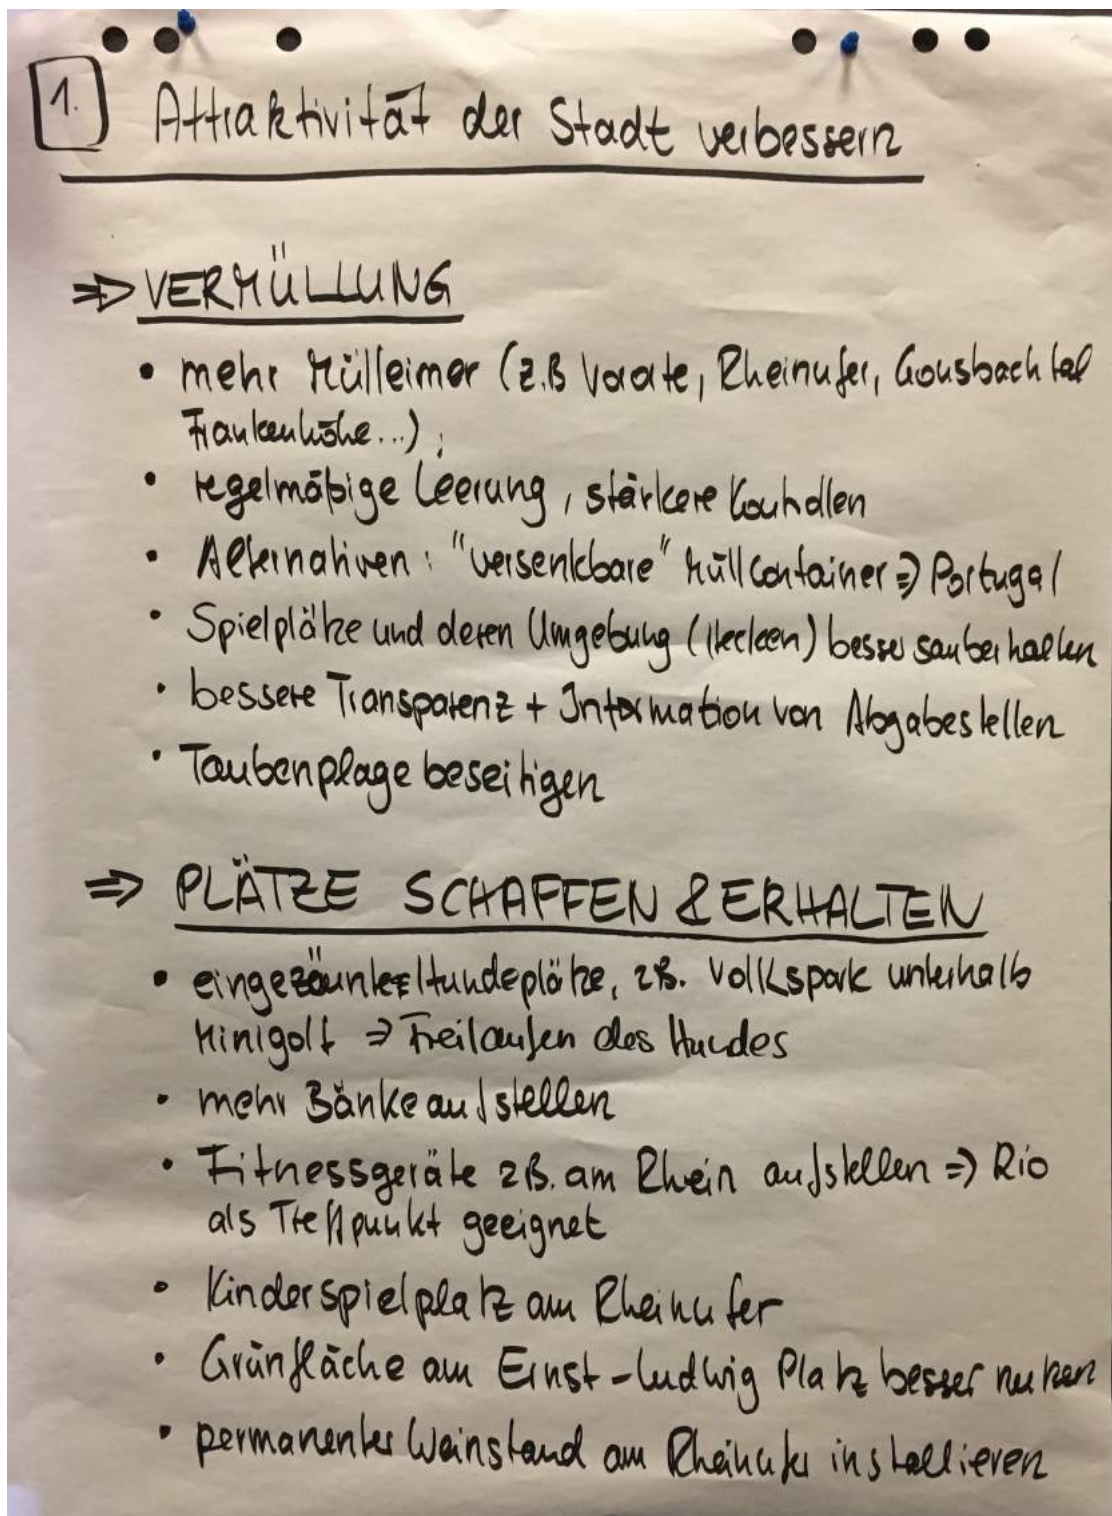 1. Attraktivität der Stadt verbessern
⇒ VERMÜLLUNG
• mehr Mülleimer (z.B Rheinufer, Gonsbachtal
Frankenhöhe...);
• regelmäßige Leerung, stärkere Kontrollen
• Alternativen: "versenkbare" Müllcontainer ⇒ Portugal
• Spielplätze und deren Umgebung (Hecken) besser sauber halten
• bessere Transparenz + Information von Abgabestellen
• Taubenplage beseitigen
⇒ PLÄTZE SCHAFFEN & ERHALTEN
• eingezäunte Hundeplätze, z.B. Volkspark unterhalb
Minigolf ⇒ Freilaufen des Hundes
• mehr Bänke aufstellen
• Fitnessgeräte z.B. am Rhein aufstellen ⇒ Rio
als Treffpunkt geeignet
• Kinderspielplatz am Rheinufer
• Grünfläche am Ernst-Ludwig Platz besser nutzen
• permanenter Weinstand am Rheinufer installieren